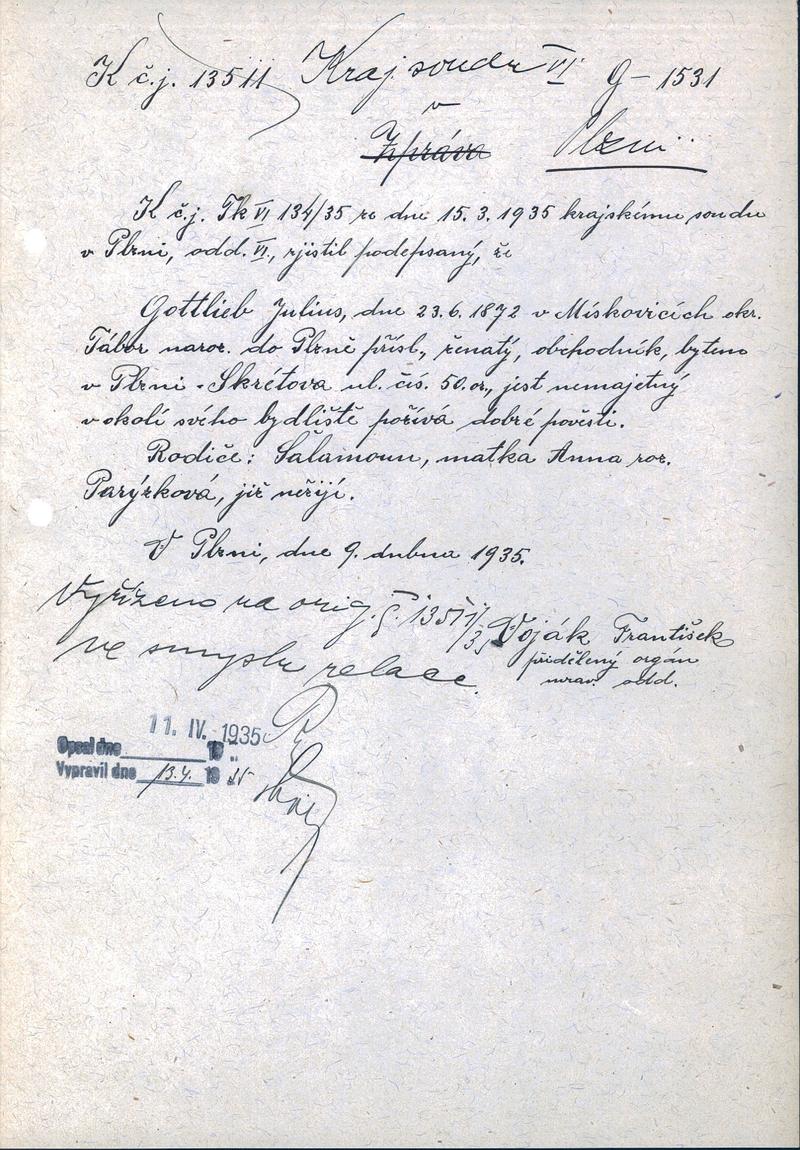 K č.j. 13511 Kraj. soudu VI. G – 1531
v
Zpráva Plzni
K č.j. Tk VI 134/35 ze dne 15. 3. 1935 krajského soudu
v Plzni, odd. VI., zjistil podepsaný, že
Gottlieb Julius, dne 23. 6. 1872 v Mískovicích okr.
Tábor naroz. do Plzně přísl., ženatý, obchodník, bytem
v Plzni - Skrétova ul. čís. 50. or., jest nemajetný
v okolí svého bydliště požívá dobré pověsti.
Rodiče: Šalamoun, matka Anna roz.
Parýzková, již nežijí.
V Plzni, dne 9. dubna 1935.
Vyřízeno na orig. č. 13511/35
Voják František
ve smyslu relace.
přidělený orgán
mrav. odd.
11. IV. 1935
Opsal dne 19
Vypravil dne 13.4. 19 35